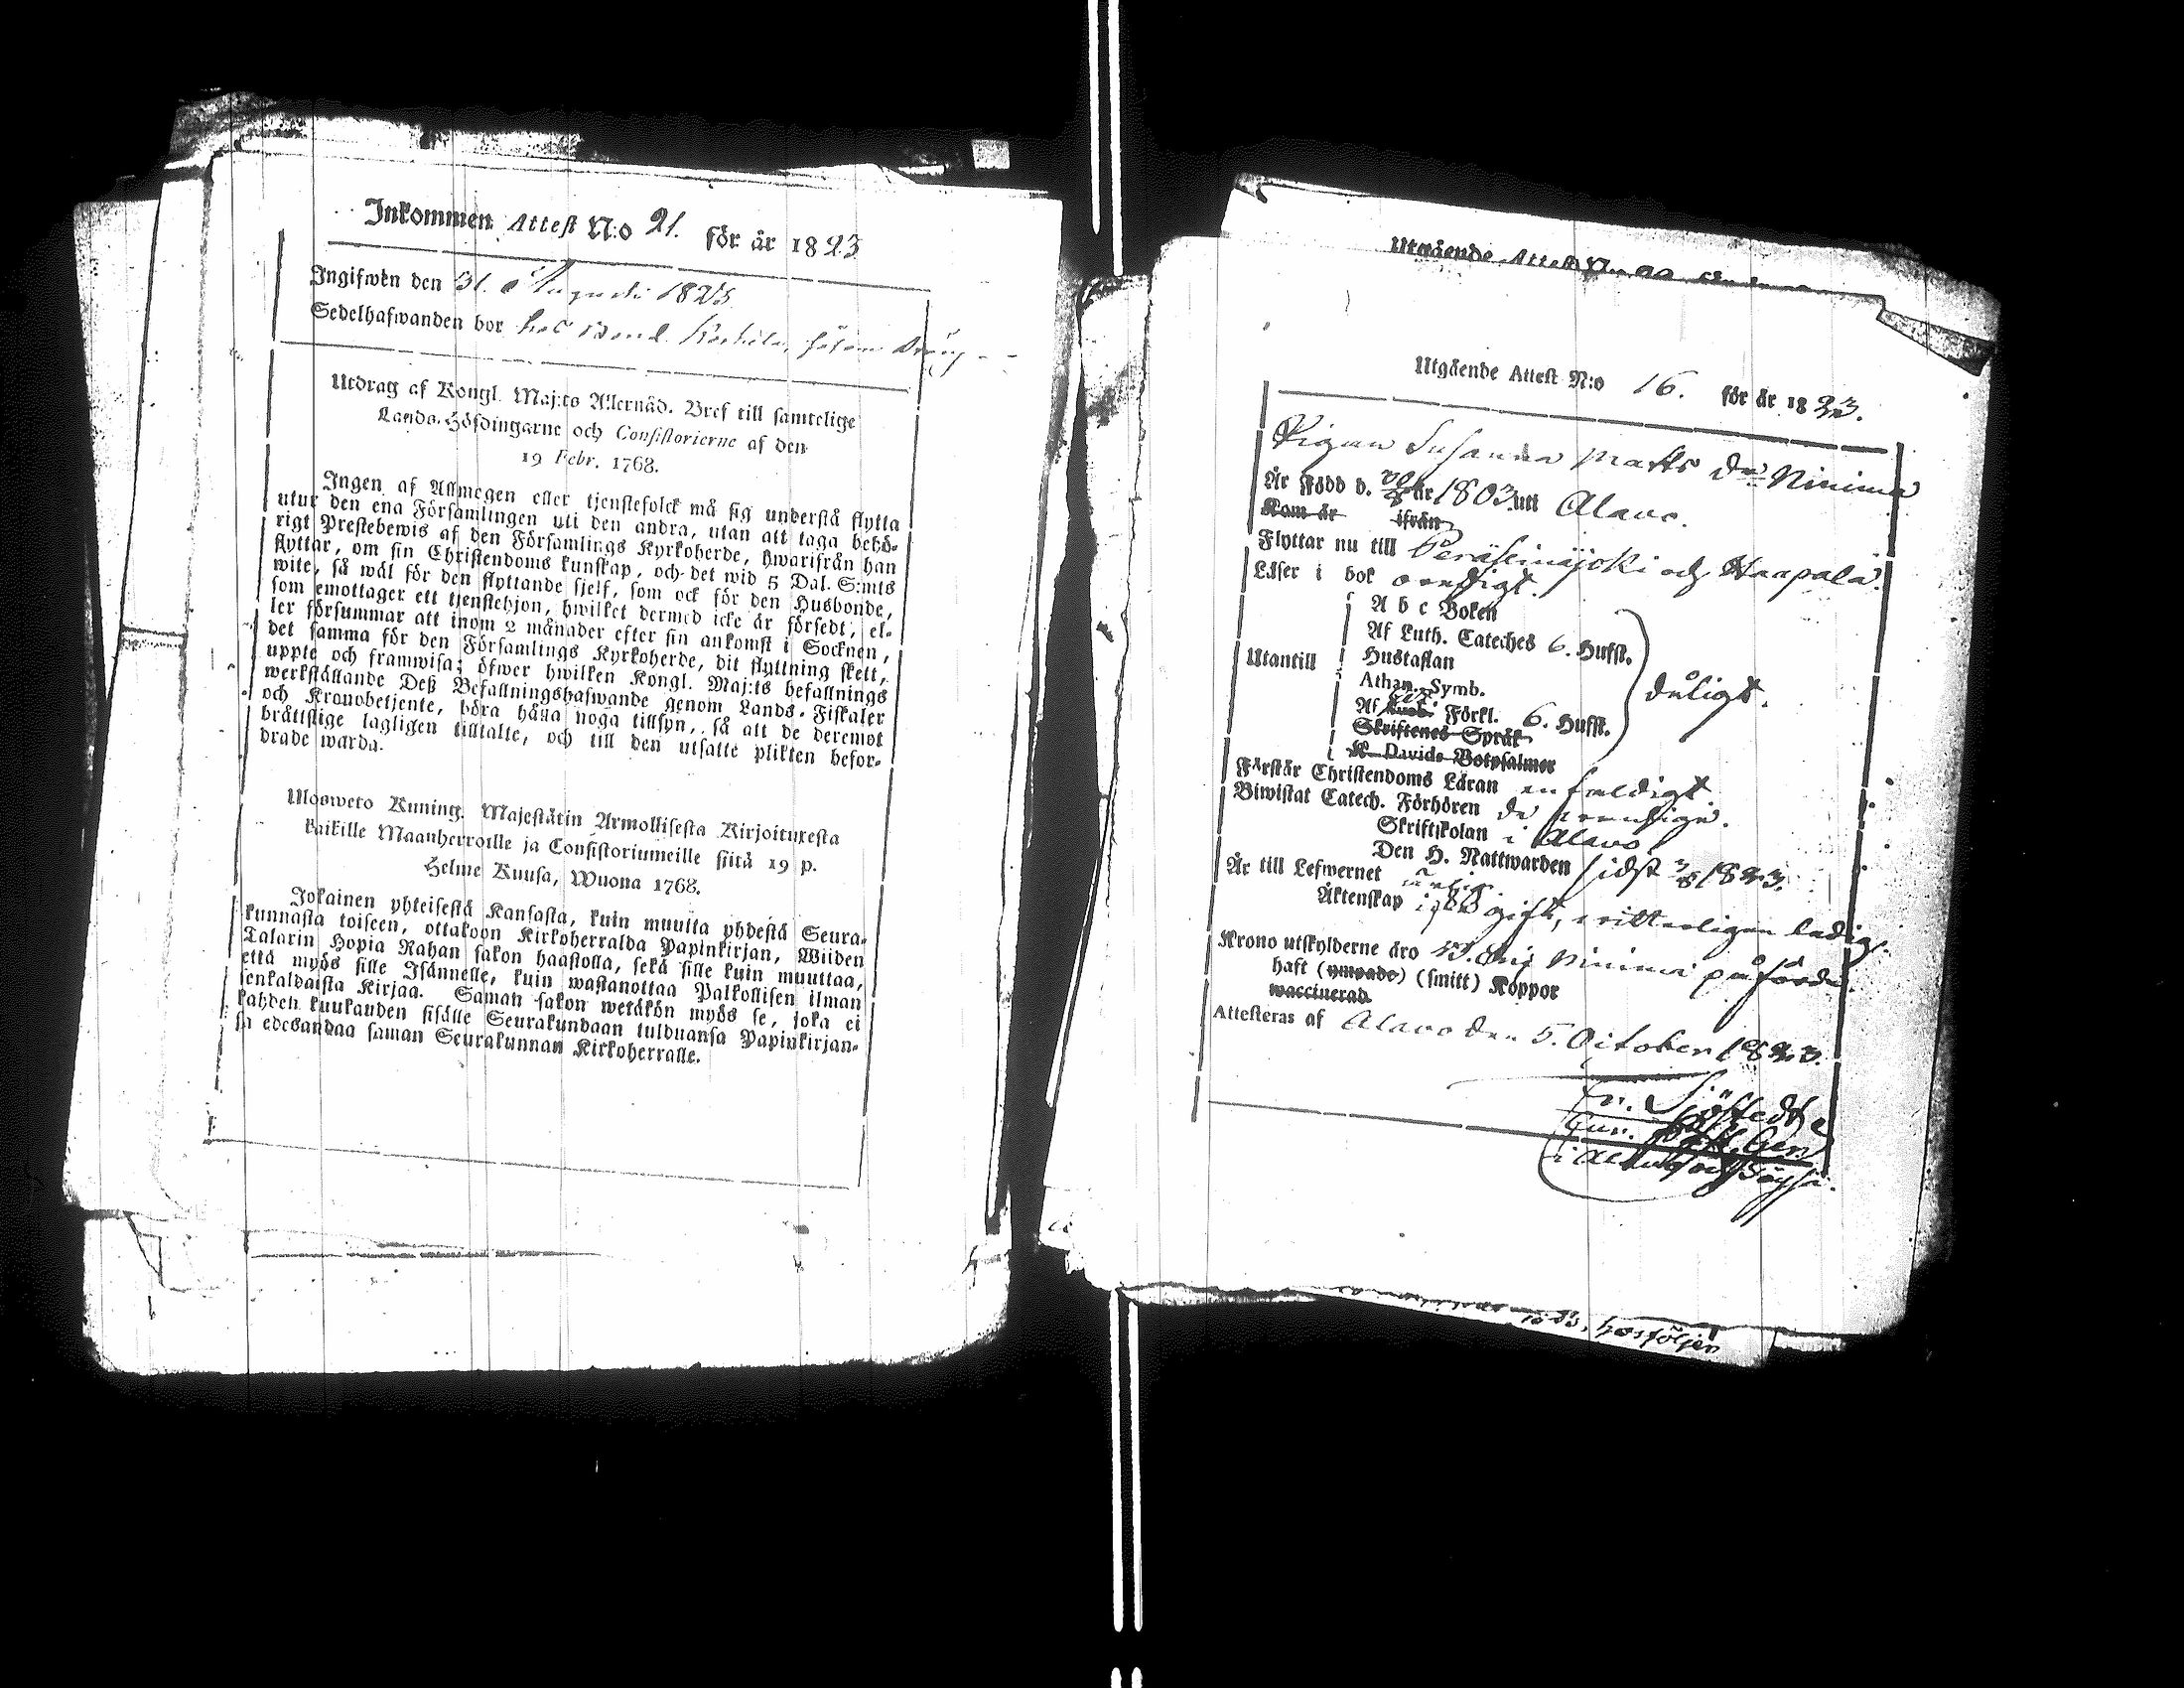 Inkommen Attest N:o 21. för år 1823
Ingifwen den 31. Augusti 1823
Sedelhafwanden bor hos Bond. såsom Dräng
Utdrag af Kongl. Maj:ts Allernåd. Bref till samtelige
Lands-Höfdingarne och Consistorierne af den
19 Febr. 1768.
Ingen af Allmogen eller tjenstefolck må sig understå flytta
utur den ena Församlingen uti den andra, utan att taga behö-
rigt Prestebewis af den Församlings Kyrkoherde, hwarifrån han
flyttar, om sin Christendoms kunskap, och det wid 5 Dal. S:mts
wite, så wäl för den flyttande sjelf, som ock för den Husbonde,
som emottager ett tjenstehjon, hwilket dermed icke är försedt, el-
ler försummar att inom 2 månader efter sin ankomst i Socknen,
det samma för den Församlings Kyrkoherde, dit flyttning skett,
uppte och framwisa; öfwer hwilken Kongl. Maj:ts befallnings
werkställande Deß Befallningshafwande genom Lands-Fiskaler
och Kronobetjente, böra hålla noga tillsyn, så att de deremot
bråttslige lagligen tilltalte, och till den utsatte plikten befor-
drade warda.
Ulosweto Kuning. Majestätin Armollisesta Kirjoituxesta
kaikille Maanherroille ja Consistoriumeille siitä 19 p.
Helme Kuusa, Wuona 1768.
Jokainen yhteisestä Kansasta, kuin muutta yhdestä Seura-
kunnasta toiseen, ottakoon Kirkoherralda Papinkirjan, Wiiden
Talarin Hopia Rahan sakon haastolla, sekä sille kuin muuttaa,
että myös sille Isännelle, kuin wastanottaa Palkollisen ilman
senkaldaista Kirjaa. Saman sakon wetäkön myös se, joka ei
kahden kuukauden sisälle Seurakundaan tulduansa Papinkirjan-
sa edesandaa saman Seurakunnan Kirkoherralle.
Utgående Attest N:o
Utgående Attest N:o 16. för år 1823.
Pigan Susanna Matts Dr Ninima
År Född d. år 1803 uti Alavo.
Kom år ifrån
Flyttar nu till Peräseinäjoki och Haapala.
Läser i bok
Utantill
A b c Boken
Af Luth. Cateches 6. Hufst.
Hustaflan
Athan. Symb.
Af Förkl. 6. Hufst.
Skriftenes Språk
K. Davids Botpsalmer
dåligt.
Förstår Christendoms Läran enfaldigt.
Biwistat Catech. Förhören
Skriftskolan i Alavo
Den H. Nattwarden sidst 1823.
Är till Lefwernet
Äktenskap gift, ledig.
Krono utskylderne äro Ninima påförda.
haft (ympade) (smitt) Koppor
waccinerad
Attesteras af Alavo den 5. October 1823.
Sjöstedt
i Alavo och Töysä.
hosföljen